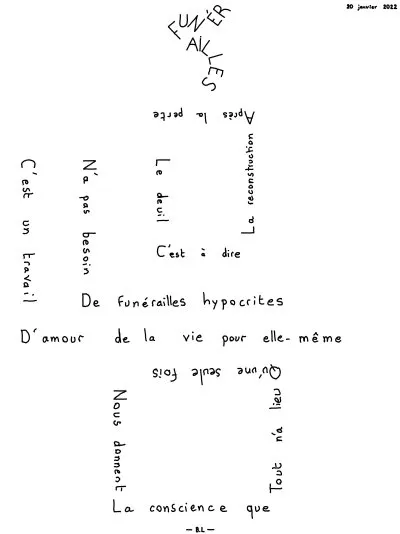 20 janvier 2022
FUNÉR
AILLES
Après la perte
La reconstruction
C'est un travail
N'a pas besoin
Le deuil
C'est à dire
De funérailles hypocrites
D'amour de la vie pour elle-même
Qu'une seule fois
Nous donnent
Tout n'a lieu
La conscience que
— B.L —